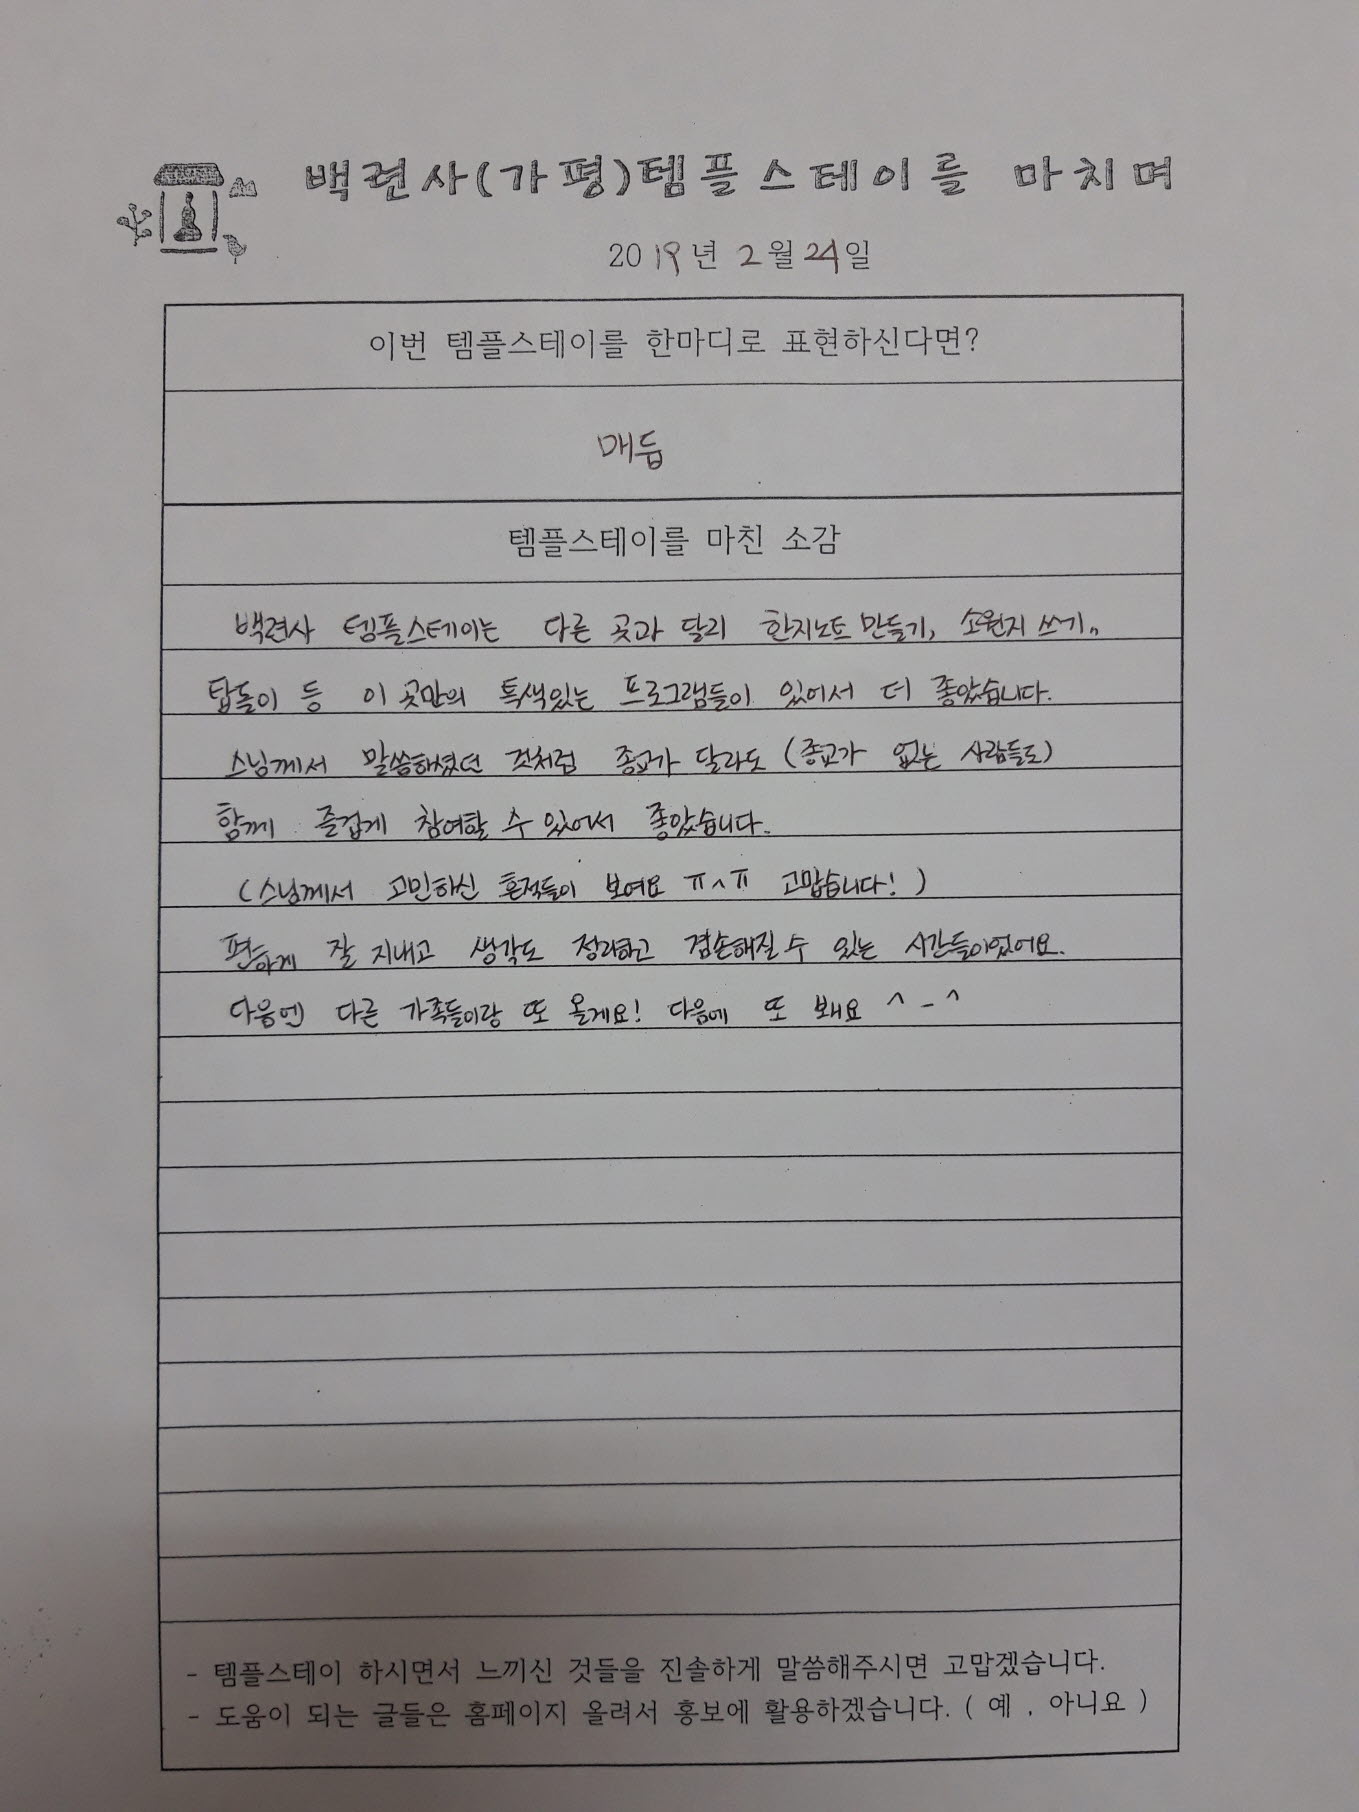 백련사(가평)템플스테이를 마치며
2019년 2월 24일
이번 템플스테이를 한마디로 표현하신다면?
매듭
템플스테이를 마친 소감
백련사 템플스테이는 다른 곳과 달리 한지노트 만들기, 소원지 쓰기,,
탑돌이 등 이 곳만의 특색있는 프로그램들이 있어서 더 좋았습니다.
스님께서 말씀하셨던 것처럼 종교가 달라도 (종교가 없는 사람들도)
함께 즐겁게 참여할 수 있어서 좋았습니다.
(스님께서 고민하신 흔적들이 보여요 ㅠ^ㅠ 고맙습니다!)
편하게 잘 지내고 생각도 정리하고 겸손해질 수 있는 시간들이었어요.
다음엔 다른 가족들이랑 또 올게요! 다음에 또 봬요 ^-^
- 템플스테이 하시면서 느끼신 것들을 진솔하게 말씀해주시면 고맙겠습니다.
- 도움이 되는 글들은 홈페이지 올려서 홍보에 활용하겠습니다. ( 예 , 아니요 )